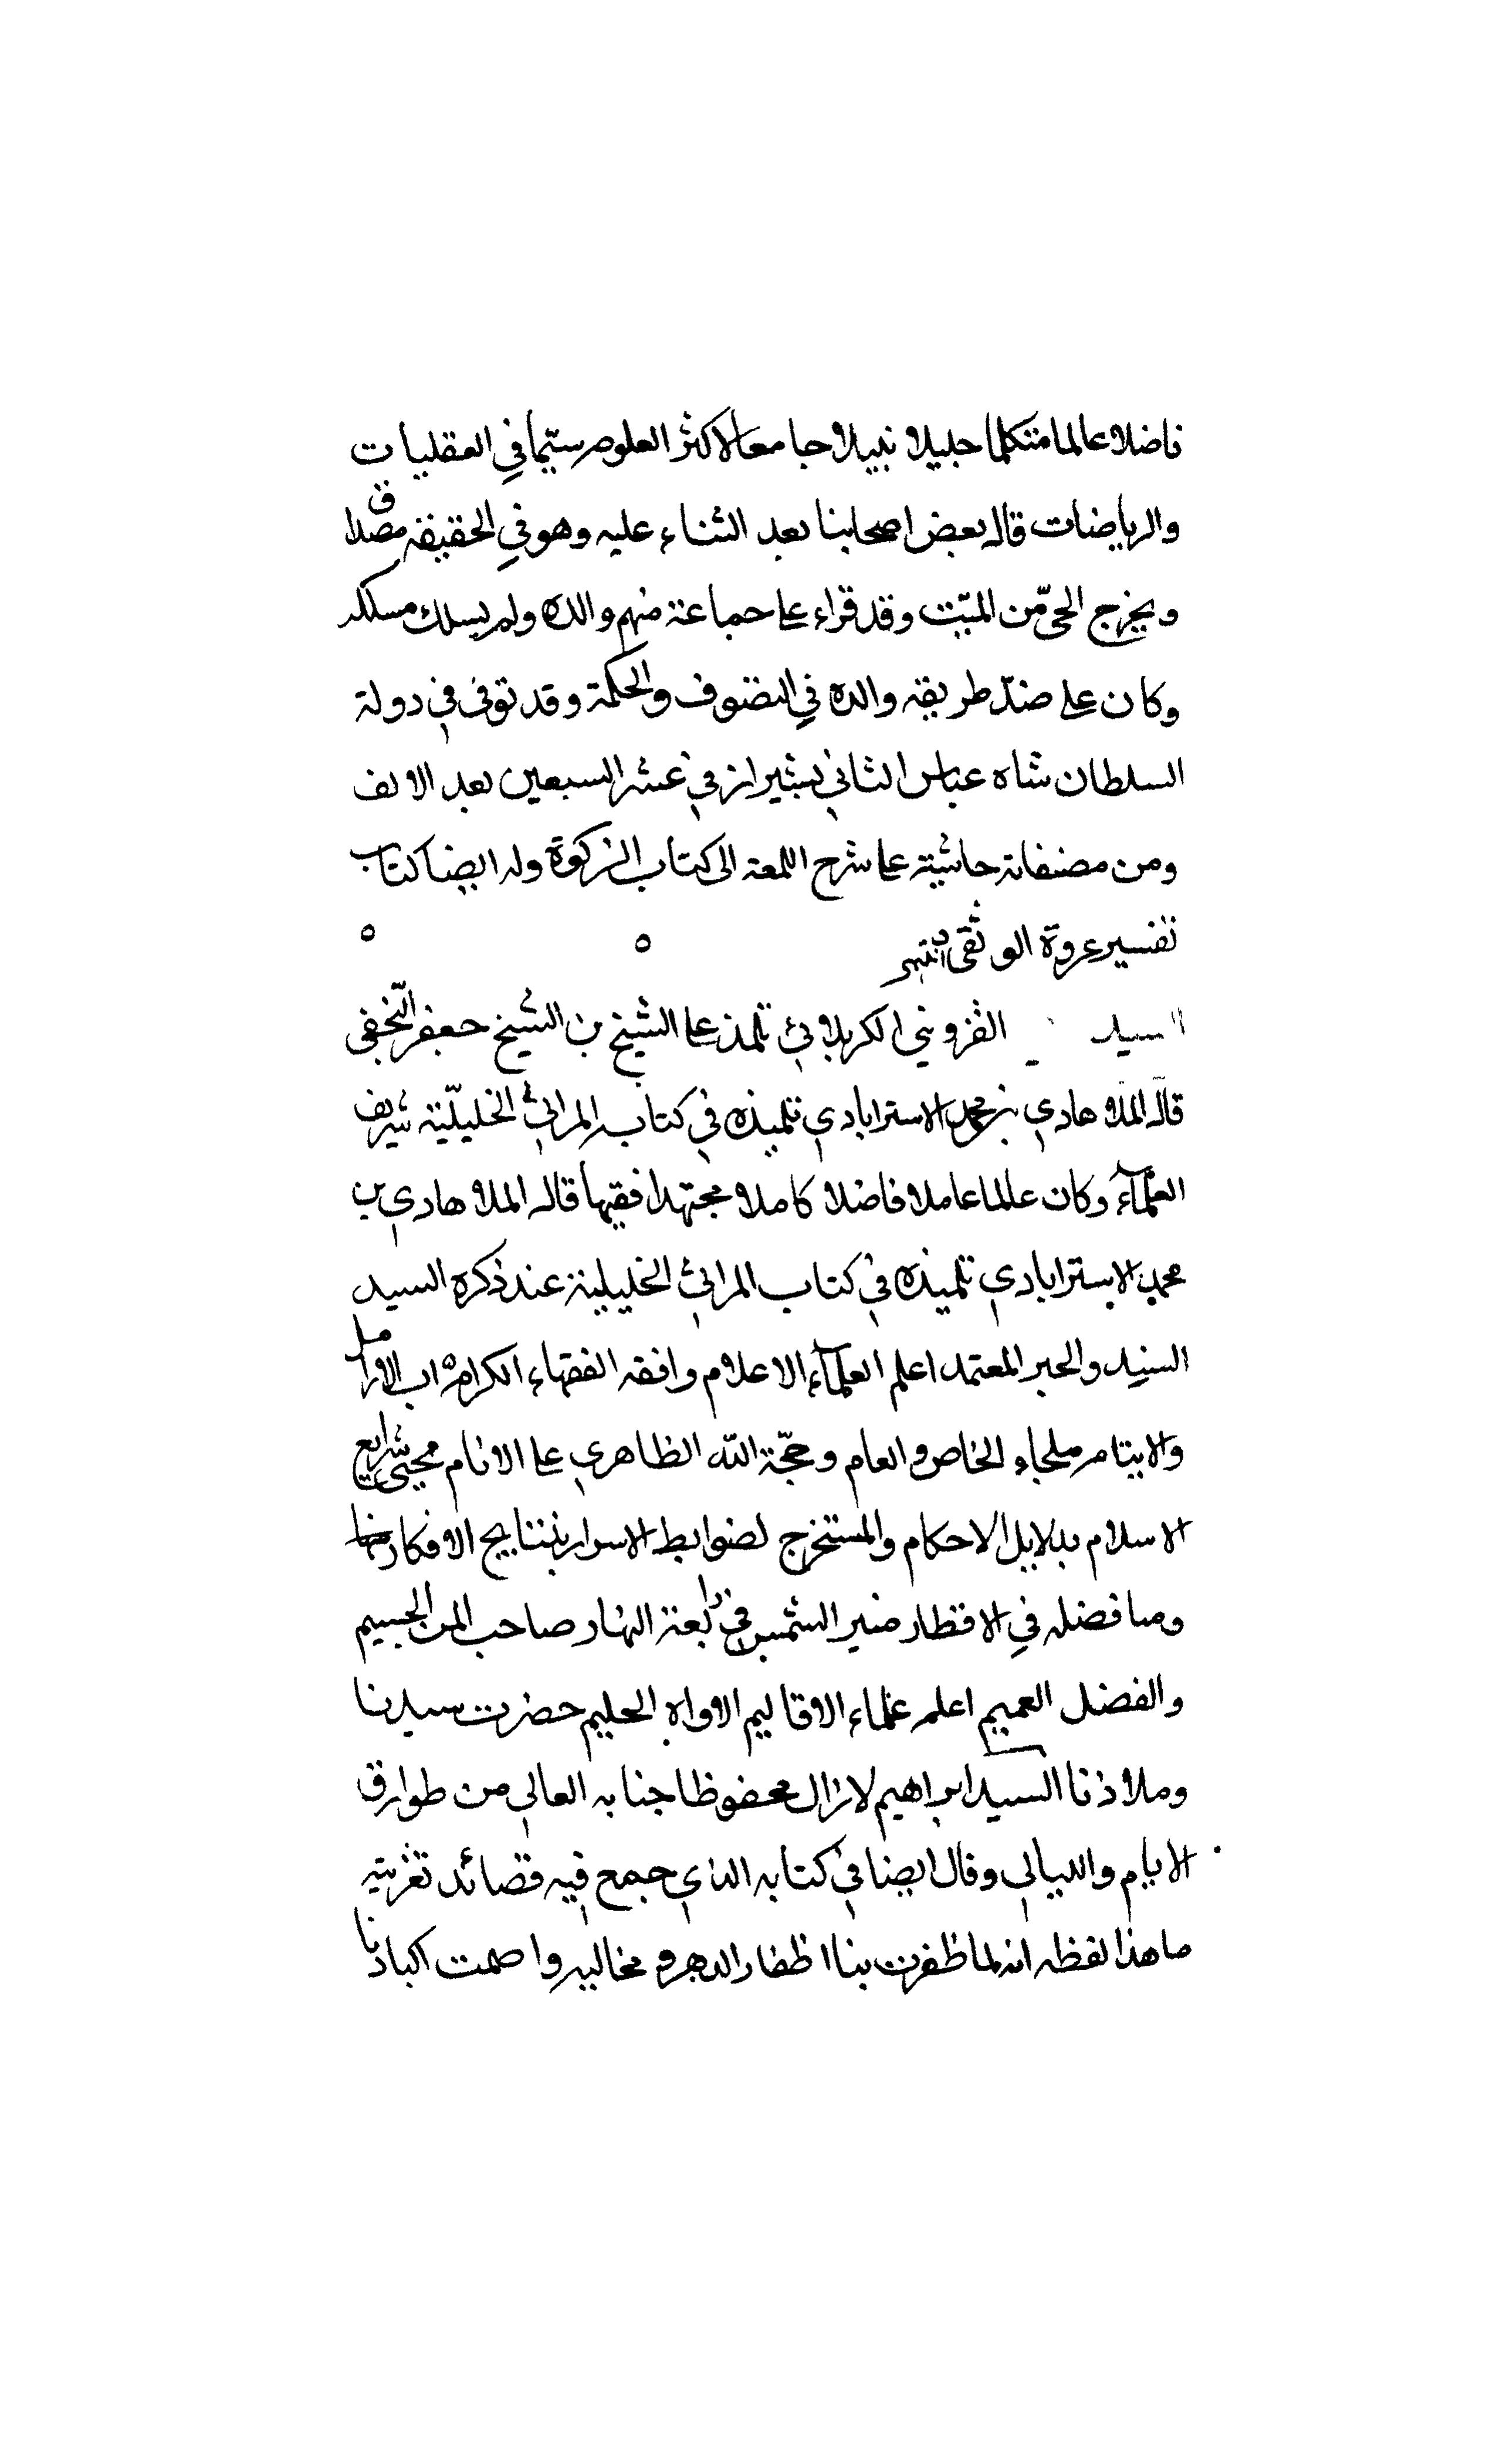 فاضلا عالما متكلما جليلا نبيلا جامعا لاكثر العلوم سيّما في العقليات
والرياضات قال بعض اصحابنا بعد الثناء عليه وهو في الحقيقة مصداق
ويخرج الحىّ من الميّت وقد قراء على جماعة منهم والده ولم يسلك مسلكه
وكان على ضدّ طريقه والده في التصوف والحكمة وقد توفى في دولة
السلطان شاه عباس الثاني بشيراز في عشر السبعين بعد الالف
ومن مصنفاته حاشية على شرح اللمعه الى كتاب الزكوة وله ايضا كتاب
تفسير عروة الوثقى انتهى ٥ ٥
السيد القزويني الكربلائي تلمذ على الشيخ بن الشيخ جعفر النّجفى
قاله الملا هادي بن محمد الاسترابادي تلميذه في كتاب المراثي الخليليّة شريف
العلمآء وكان عالما عاملا فاضلا كاملا مجتهدا فقيها قاله الملا هادي بن
محمد الاسترابادي تلميذه في كتاب المراثي الخليلية عند ذكره السيد
السنيد والحبر المعتمد اعلم العلمآء الاعلام وافقه الفقهاء الكرام اب الارامل
والايتام ملجاء الخاص والعام وحجّة اللّه الظاهري على الانام محيى شرايع
الاسلام بدلايل الاحكام والمستخرج لضوابط الاسرار بنتايج الافكار
وصا فضله في الاقطار ضير الشمس في رابعة النهار صاحب المن الجسيم
والفضل العميم اعلم علماء الاقاليم الاواه الحليم حضرت سيدنا
وملاذنا السيد ابراهيم لازال محفوظا جنابه العالي من طوارق
الايام والليالي وقال ايضا في كتابه الذي جمع فيه قصائد تعزيته
ما هذا لفظه انه لما ظفرت بنا اظفار الدهر و مخاليبه واصمت اكبادنا